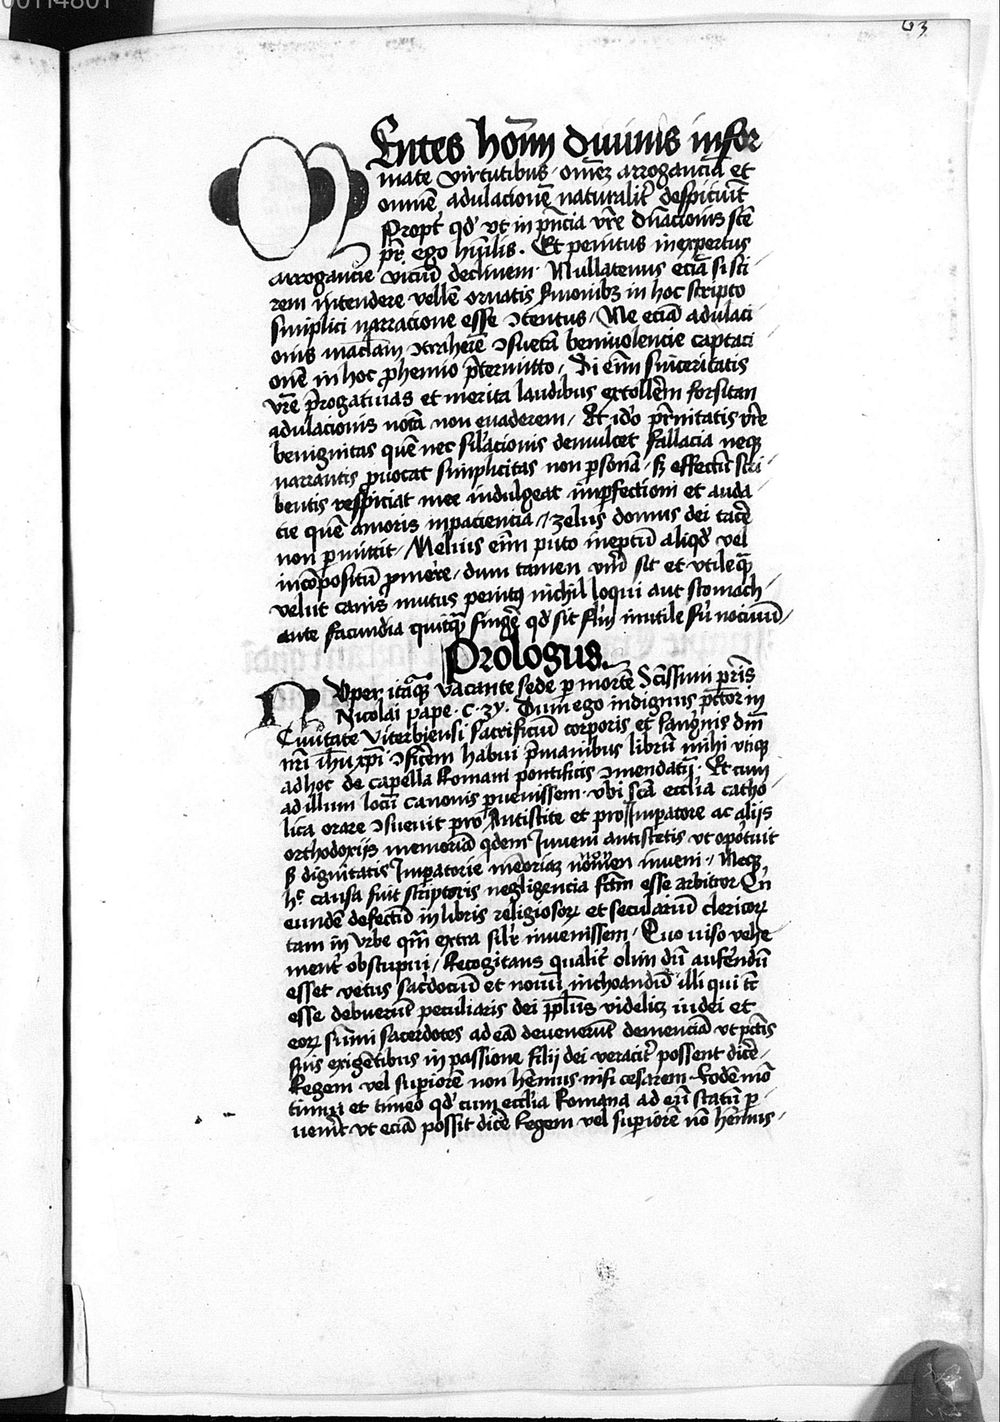 63
MEntes hoīm diuinis infor
mate virtutibus / omēz arroganciā et
omnē adulacionē naturalit͛ despiciūt
Propt͛ qd' vt in p̄ncia vr̄e dn̄acionis stē
pr̄ ego hūilis. Et penitus inexpertus
arrogancie viciū declinem. Nullatenus eciā si sci
rem intendere vellē ornatis s̄monibꝫ in hoc scripto
simplici narracione esse ꝯtentus / Ne eciā adulaci
onis maclam ꝯtraherē ꝯsuetā beniuolencie captaci
onē in hoc ꝓhemio p̄termitto / Si em̄ sinceritatis
vr̄e p̄rogatiuas et merita laudibus extollerm forsitan
adulacionis notā non euaderem / Et ido pr̄nitatis vr̄e
benignitas quē nec sil'acionis demulcet fallacia neqꝫ
narrantis ꝓuocat simplicitas non ꝑsonā / sꝫ effectū scri
bentis respiciat mee indulgeat imꝑfectioni et auda
cie quē amoris inpaciencia / zelus domus dei tacē
non ꝑmittit / Melius em̄ puto ineptū aliqd' vel
incōpositū ꝓmere / dum tamen vm̄ sit et vtileqꝫ
velut canis mutus penitꝰ nichil loqui aut stomach
ante facundia quitqꝫ fingē qd' sit inutile nociuū /
Prologus.
NVper itaqꝫ vacante sede ꝑ mortē Sctissimi pr̄is
Nicolai pape. c. 3y. Dum ego indignus pctor in
Ciuitate viterbiensi sacrificiū corporis et sangnis dm̄
nr̄i ih̄u xp̄i ꝯficem habui p̄manibus libriū mihi vtiqꝫ
ad hoc de capella Romani pontificis ꝯmendatū. Et cum
ad illum locū canonis ꝑuenissem. vbi scā ecclia catho
lica orare ꝯsueuit pro Antistite et pro Imperatore ac alijs
orthodoxijs memoriā qdem Inueni antistetis vt oportuit
sꝫ dignitatis Imperatorie mēoriaz nō inueni / Neqꝫ
hͦ causa fuit scriptoris negligencia fctm esse arbitror Cū
eundē defectū in libris religiosorꝫ et seculariū clericorꝫ
tam in Vrbe qm̄ extra sil'r inuenissem. Quo viso vehe
ment͛ obstupui / Recogitans qualit͛ olim dū auferendū
esset vetus sac̄docuū et nouū inchoandū illi qui tc̄
esse debuerūt peculiaris dei pplus videlicꝫ iudei et
eorꝫ sūmi sacerdotes ad eā deuenerūt demenciā vt pctis
suis exigētibus in passione filij dei veracit͛ possent dicē
Regem vel superiorē non hēmus nisi cesarem. Eodē mō
timui et timeo qd' cum ecclia Romana ad eū statū ꝑ
uenit vt eciā possit dicē Regem vel superiorē nō hēmus